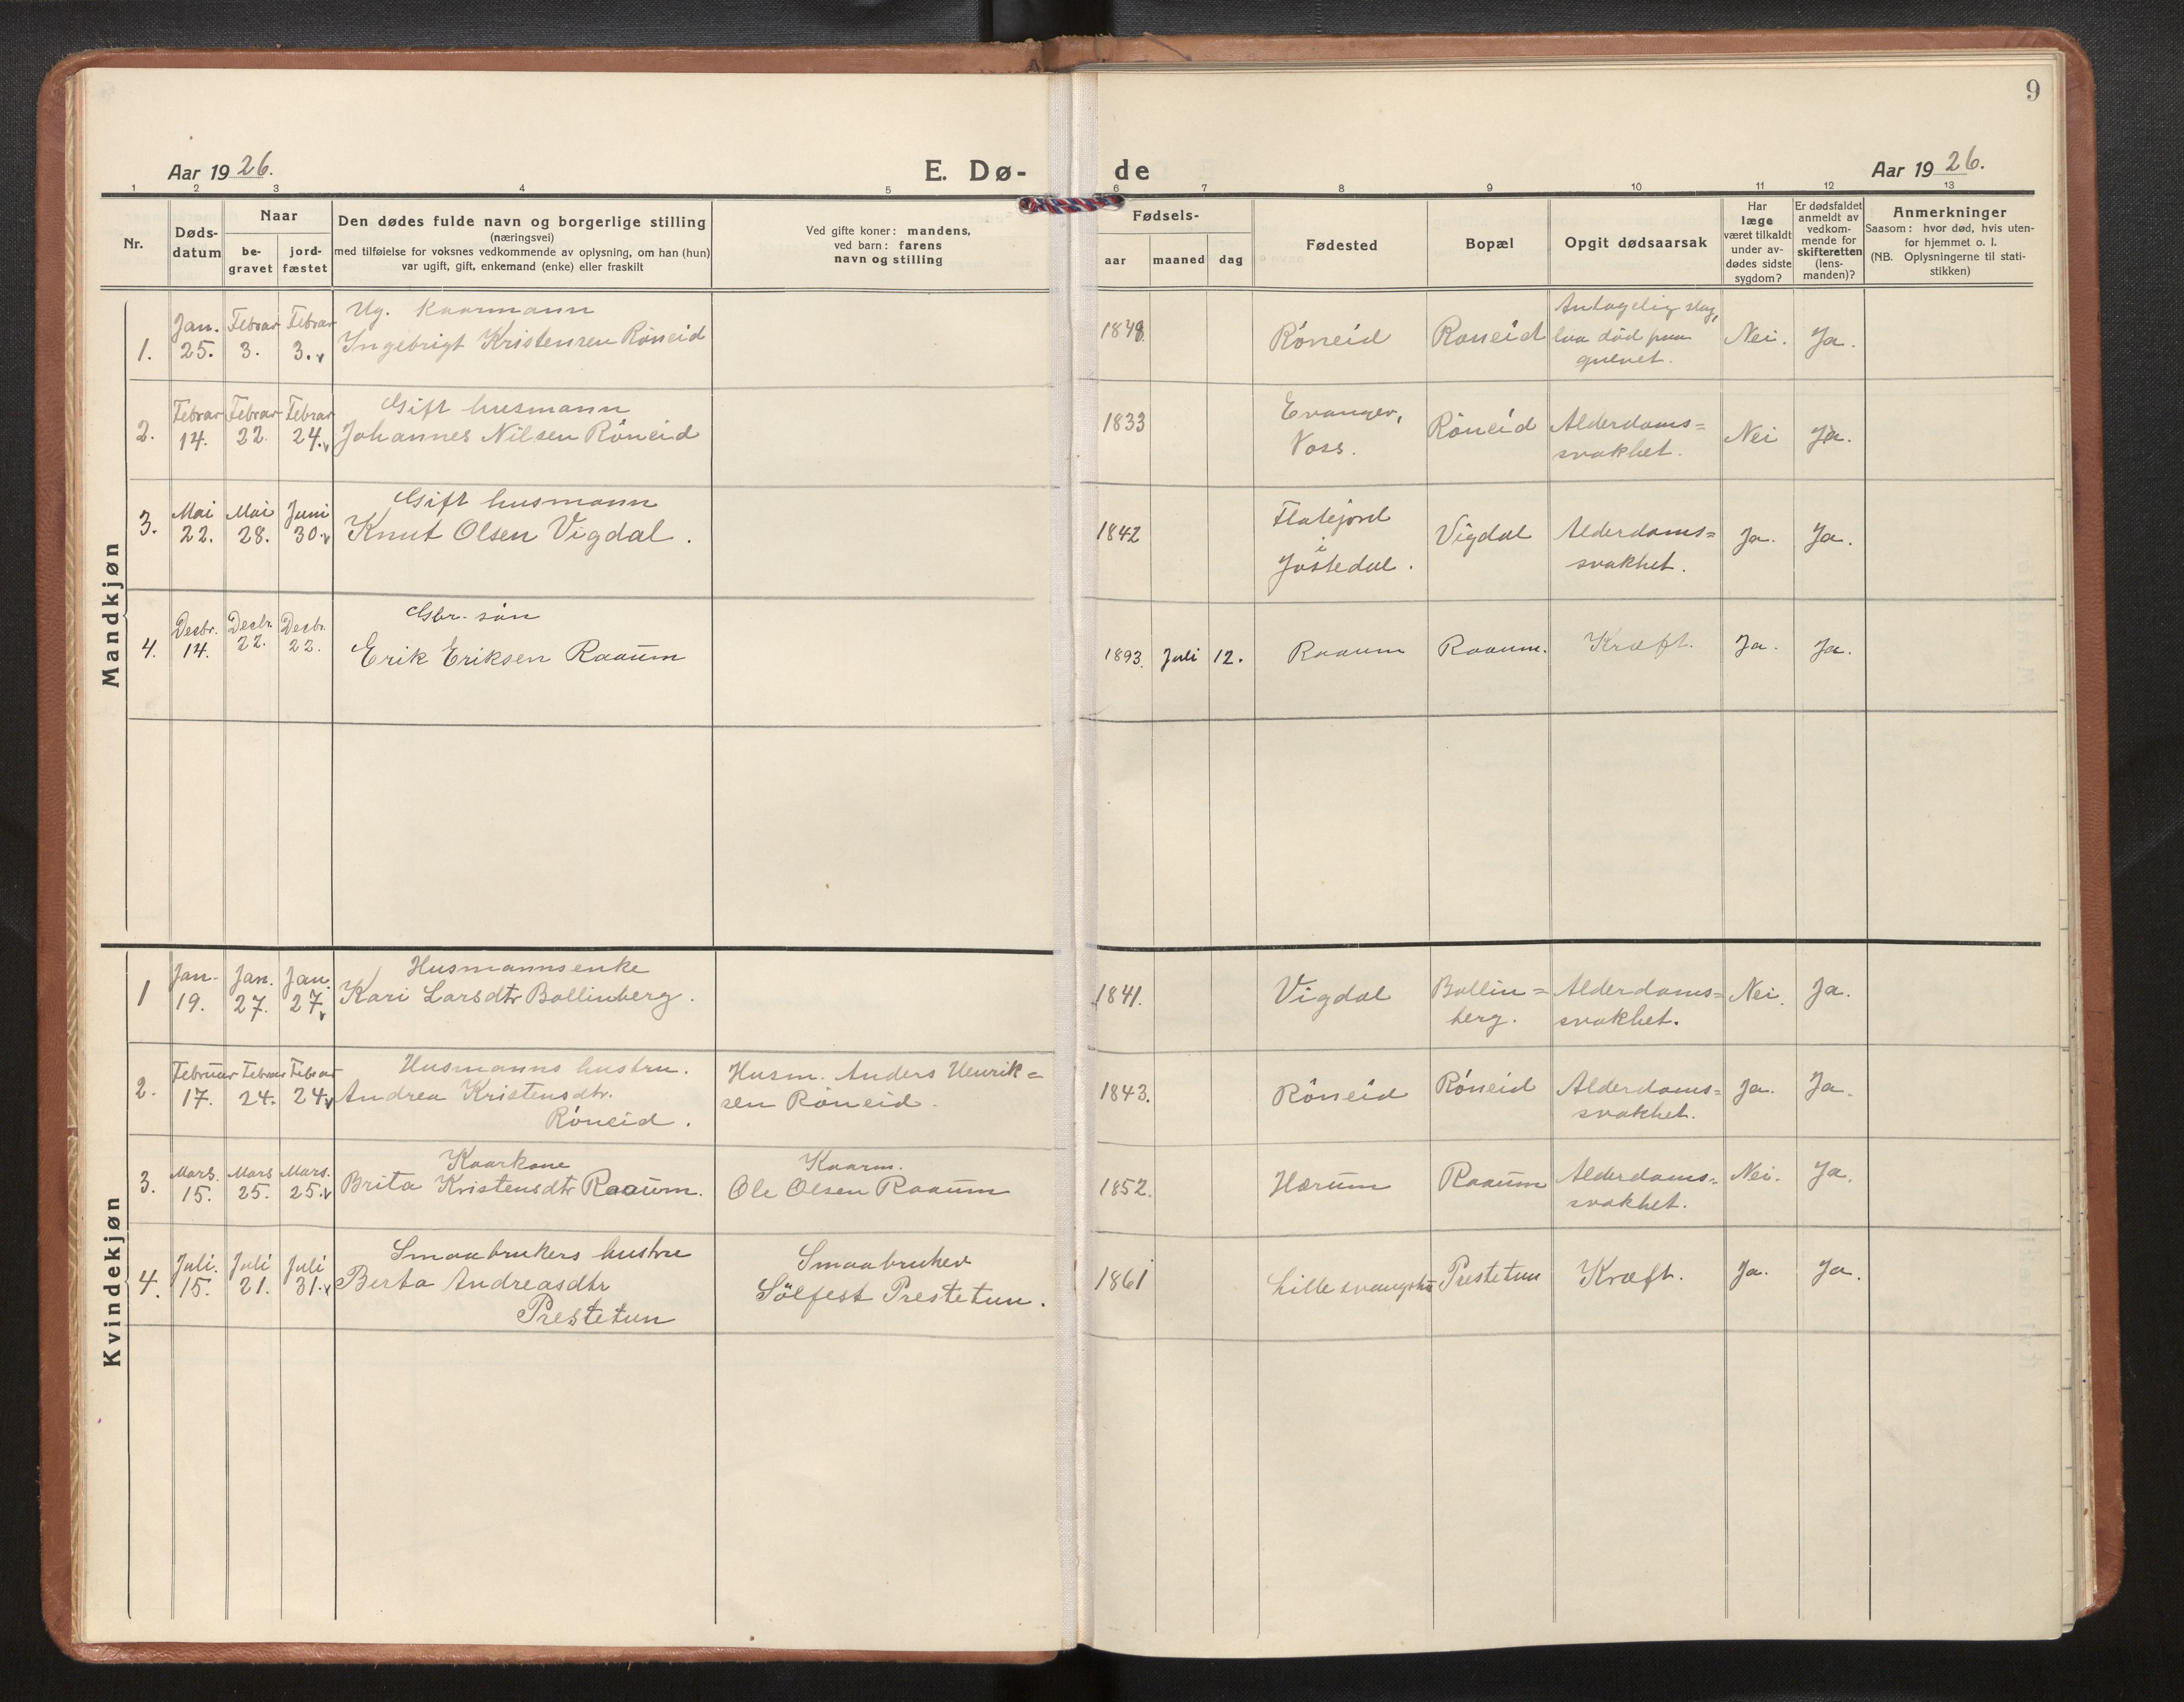 9
Aar 1926.
E. Dø-
de
Aar 1926.
1 2 3 4 5 6 7 8 9 10 11 12 13
Nr.
Døds-
datum
Naar
be-
gravet
jord-
fæstet
Den dødes fulde navn og borgerlige stilling
(næringsvei)
med tilføielse for voksnes vedkommende av oplysning, om han (hun)
var ugift, gift, enkemand (enke) eller fraskilt
Ved gifte koner: mandens,
ved barn: farens
navn og stilling
Fødsels-
aar maaned dag
Fødested
Bopæl
Opgit dødsaarsak
Har
læge
været tilkaldt
under av-
dødes sidste
sygdom?
Er dødsfaldet
anmeldt av
vedkom-
mende for
skifteretten
(lens-
manden)?
Anmerkninger
Saasom: hvor død, hvis uten-
for hjemmet o. l.
(NB. Oplysningerne til stati-
stikken)
Mandkjøn
1.
Jan.
25.
Febrar
3.
Febrar
3.
Ug. Kaarmann
Ingebrigt Kristensen Röneid
1848
Röneid
Röneid
Antagelig slag,
laa død paa
gulvet.
Nei.
Ja.
2.
Febrar
14.
Febrar
22.
Febrar
24.
Gift husmann
Johannes Nilsen Röneid
1833
Evanger,
Voss.
Röneid
Alderdoms=
svakhet.
Nei
Ja.
3.
Mai
22.
Mai
28.
Juni
30.
Gift husmann
Knut Olsen Vigdal.
1842
Flatejord
i
Jostedal.
Vigdal
Alderdoms=
svakhet.
Ja.
Ja.
4.
Desbr.
14.
Desbr.
22.
Desbr.
22.
Gbr. sön
Erik Eriksen Raaum
1893. Juli 12.
Raaum
Raaum.
Kræft.
Ja.
Ja.
Kvindekjøn
1
Jan.
19.
Jan.
27.
Jan.
27.
Husmannsenke
Kari Larsdtr Bollinberg.
1841.
Vigdal
Bollin=
berg.
Alderdoms=
svakhet.
Nei.
Ja.
2.
Februar
17.
Februar
24.
Februar
24.
Husmanns hustru.
Andrea Kristensdtr.
Röneid.
Husm. Anders Henrik=
sen Röneid.
1843.
Röneid
Röneid
Alderdoms=
svakhet.
Ja.
Ja.
3.
Mars.
15.
Mars
25.
Mars.
25.
Kaarkone
Brita Kristensdtr Raaum.
Kaarm.
Ole Olsen Raaum
1852.
Hærum
Raaum
Alderdoms=
svakhet.
Nei.
Ja.
4.
Juli.
15.
Juli
21.
Juli
31.
Smaabrukers hustru
Berta Andreasdtr
Prestetun
Smaabruker
Sölfest Prestetun.
1861
Lille
Prestetun
Kræft.
Ja.
Ja.